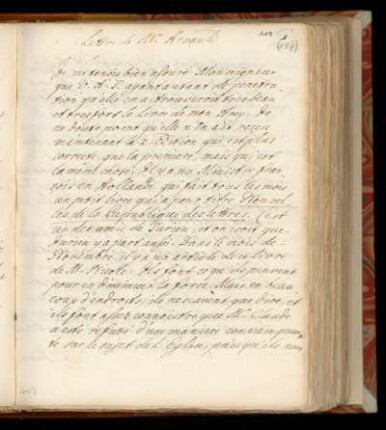 Lettre de Mr. Arnauld
Je me tenois bien assuré Monseigneur
que V. A. S. ayant autant de penetra-
tion qu'elle en a trouveroit tres beau
et tres fort le Livre de mon Amy. Je
ne doute point qu'elle n'en ait receu
maintenant la 2. Edition, qui est plus
correcte que la premiere, mais qui est
la même chose. Il y a un Ministre fran-
çois en Hollande qui fait tous les mois
un petit livre qui a pour titre Nouvel-
les de la Republique des lettres. C'est
un des amis de Jurieu, et on croit que
Jurieu y a part aussi. Dans le mois de
Novembre il y a un article de ce livre
de M. Nicole. Ils font ce qu'ils peuvent
pour en diminuer la force. Mais en beau
coup d'endroits, ils ne sçavent que dire, et
ils font assez connoistre que Mr. Claude
a esté refuté d'une maniere convainquan-
te sur le sujet de l'Eglise, puis qu'ils n'en